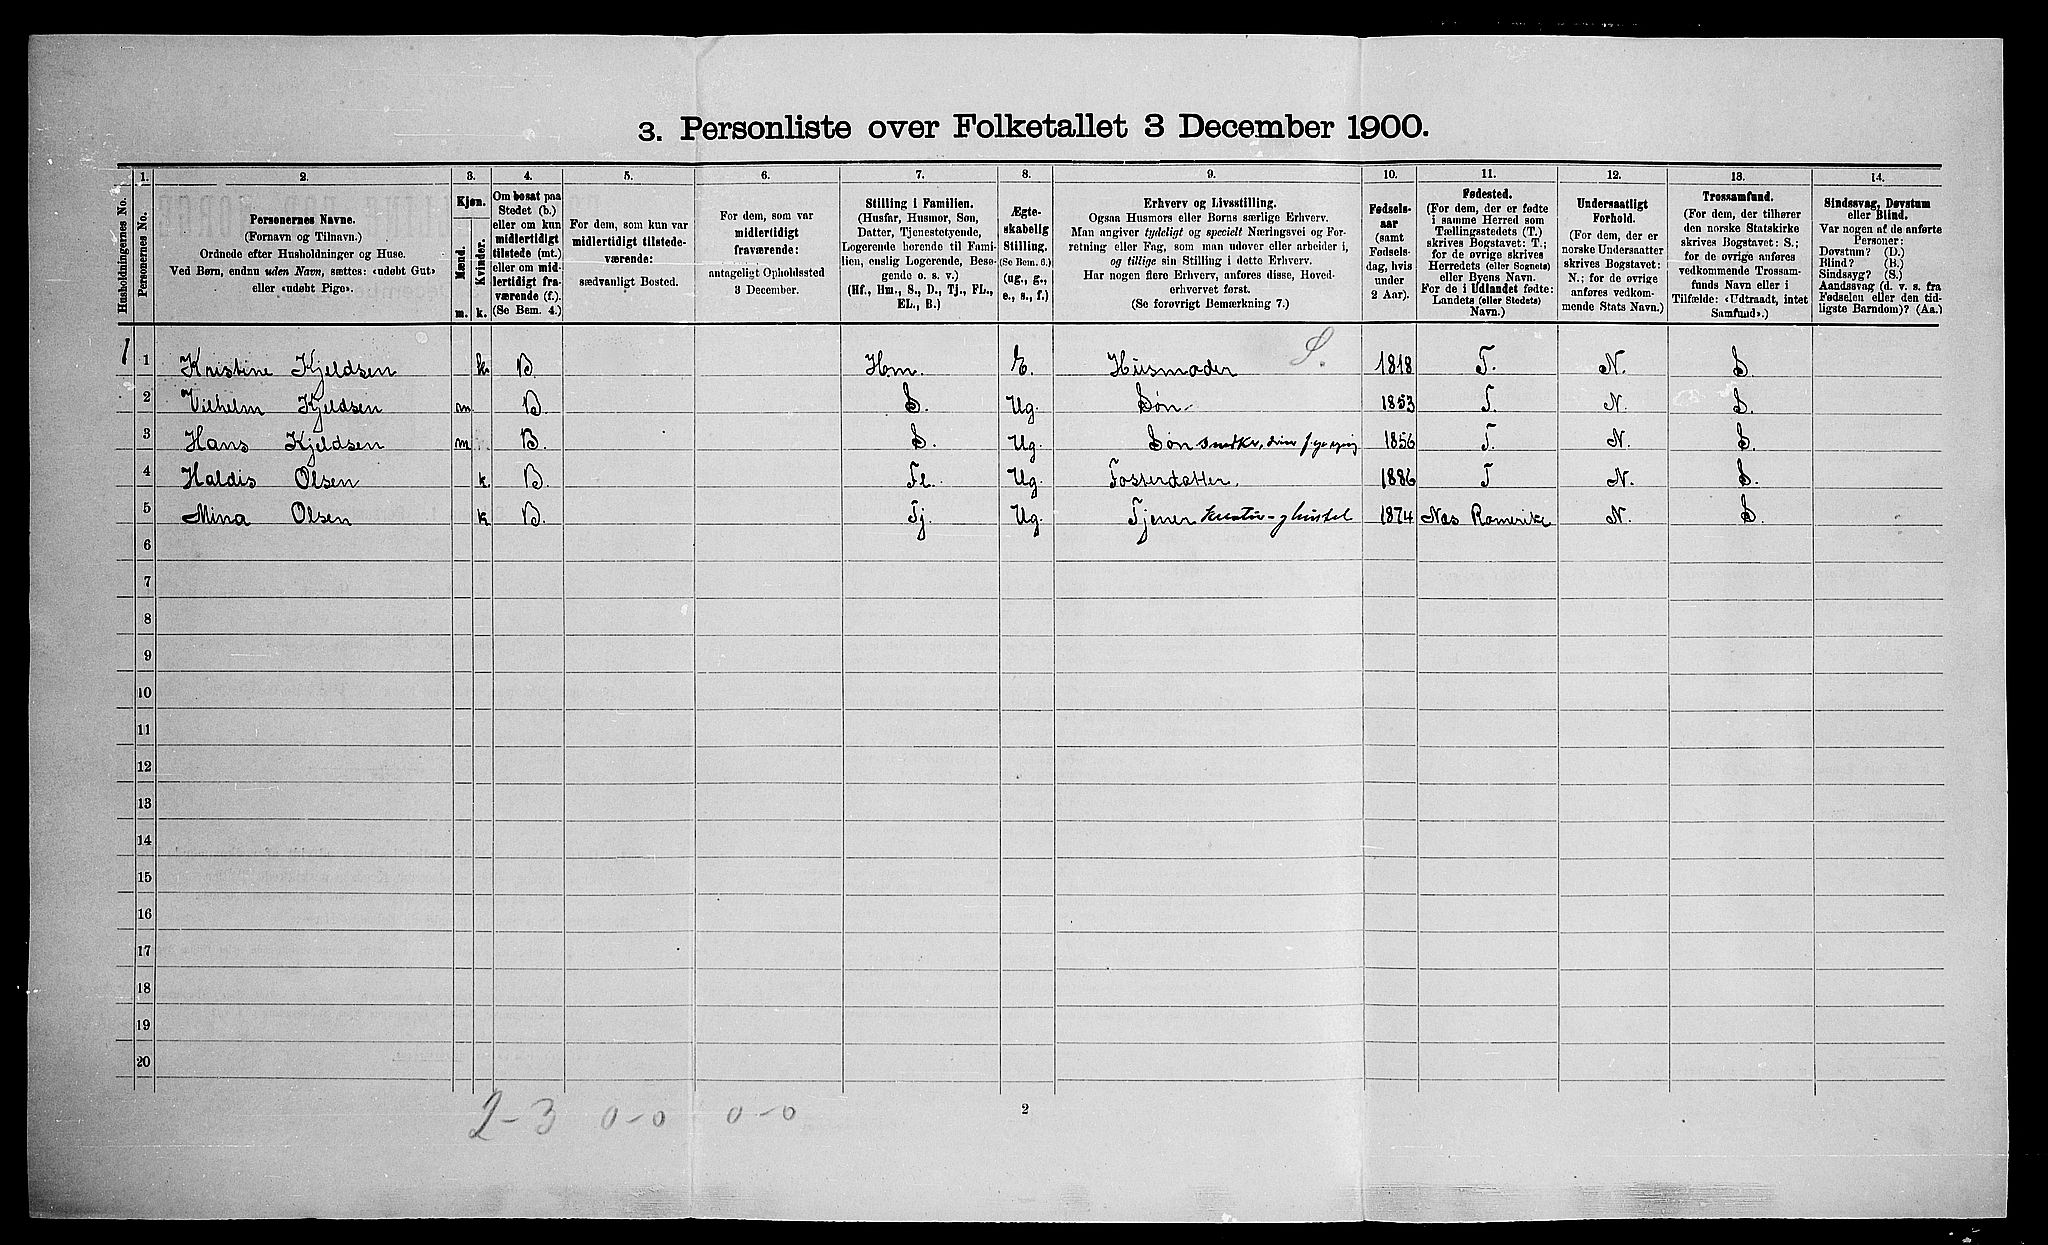 3. Personliste over Folketallet 3 December 1900.
Husholdningernes No.
1. Personernes No.
2. Personernes Navne.
(Fornavn og Tilnavn.)
Ordnede efter Husholdninger og Huse.
Ved Børn, endnu uden Navn, sættes: «udøbt Gut»
eller «udøbt Pige».
3. Kjøn.
Mænd. Kvinder.
m. k.
4. Om bosat paa
Stedet (b.)
eller om kun
midlertidigt
tilstede (mt.)
eller om mid-
lertidigt fra-
værende (f.).
(Se Bem. 4.)
5. For dem, som kun var
midlertidigt tilstede-
værende:
sædvanligt Bosted.
6. For dem, som var
midlertidigt
fraværende:
antageligt Opholdssted
3 December.
7. Stilling i Familien.
(Husfar, Husmor, Søn,
Datter, Tjenestetyende,
Logerende hørende til Fami-
lien, enslig Logerende, Besø-
gende o. s. v.)
(Hf., Hm., S., D., Tj., FL.,
EL., B.)
8. Ægte-
skabelig
Stilling.
(Se Bem. 6.)
(ug., g.,
e., s., f.)
9. Erhverv og Livsstilling.
Ogsaa Husmors eller Børns særlige Erhverv.
Man angiver tydeligt og specielt Næringsvei og For-
retning eller Fag, som man udøver eller arbeider i,
og tillige sin Stilling i dette Erhverv.
Har nogen flere Erhverv, anføres disse, Hoved-
erhvervet først.
(Se forøvrigt Bemærkning 7.)
10. Fødsels-
aar
(samt
Fødsels-
dag, hvis
under
2 Aar).
11. Fødested.
(For dem, der er fødte
i samme Herred som
Tællingsstedets (T.)
skrives Bogstavet: T.;
for de øvrige skrives
Herredets (eller Sognets)
eller Byens Navn.
For de i Udlandet fødte:
Landets (eller Stedets)
Navn.)
12. Undersaatligt
Forhold.
(For dem, der er
norske Undersaatter
skrives Bogstavet:
N.; for de øvrige
anføres vedkom-
mende Stats Navn.)
13. Trossamfund.
(For dem, der tilhører
den norske Statskirke
skrives Bogstavet: S.;
for de øvrige anføres
vedkommende Trossam-
funds Navn eller i
Tilfælde: «Udtraadt, intet
Samfund».)
14. Sindssvag, Døvstum
eller Blind.
Var nogen af de anførte
Personer:
Døvstum? (D.)
Blind? (B.)
Sindssyg? (S.)
Aandssvag (d. v. s. fra
Fødselen eller den tid-
ligste Barndom)? (Aa.)
S.
1 1 Kristine Kjeldsen k B Hm. E. Husmoder 1818 T. N. S.
2 Vilhelm Kjeldsen m B. S. Ug. Søn 1853 T. N. S.
3 Hans Kjeldsen m B. S. Ug. Søn snedker, 1856 T. N. S.
4 Haldis Olsen k. B. Fl. Ug. Fosterdatter. 1886 T N. S.
5 Mina Olsen k B. Tj. Ug. Tjener 1874 Nes Romerike N. S.
6
7
8
9
10
11
12
13
14
15
16
17
18
19
20
2-3 0-0 0-0
2